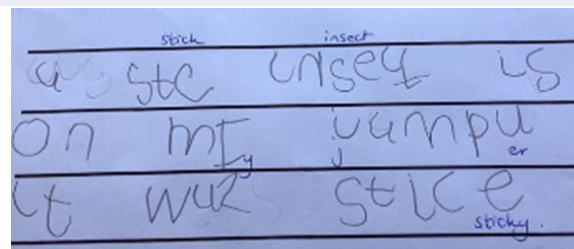 stick insect
a stc insect is
on mI jampu
y j er
it waz stice
sticky.